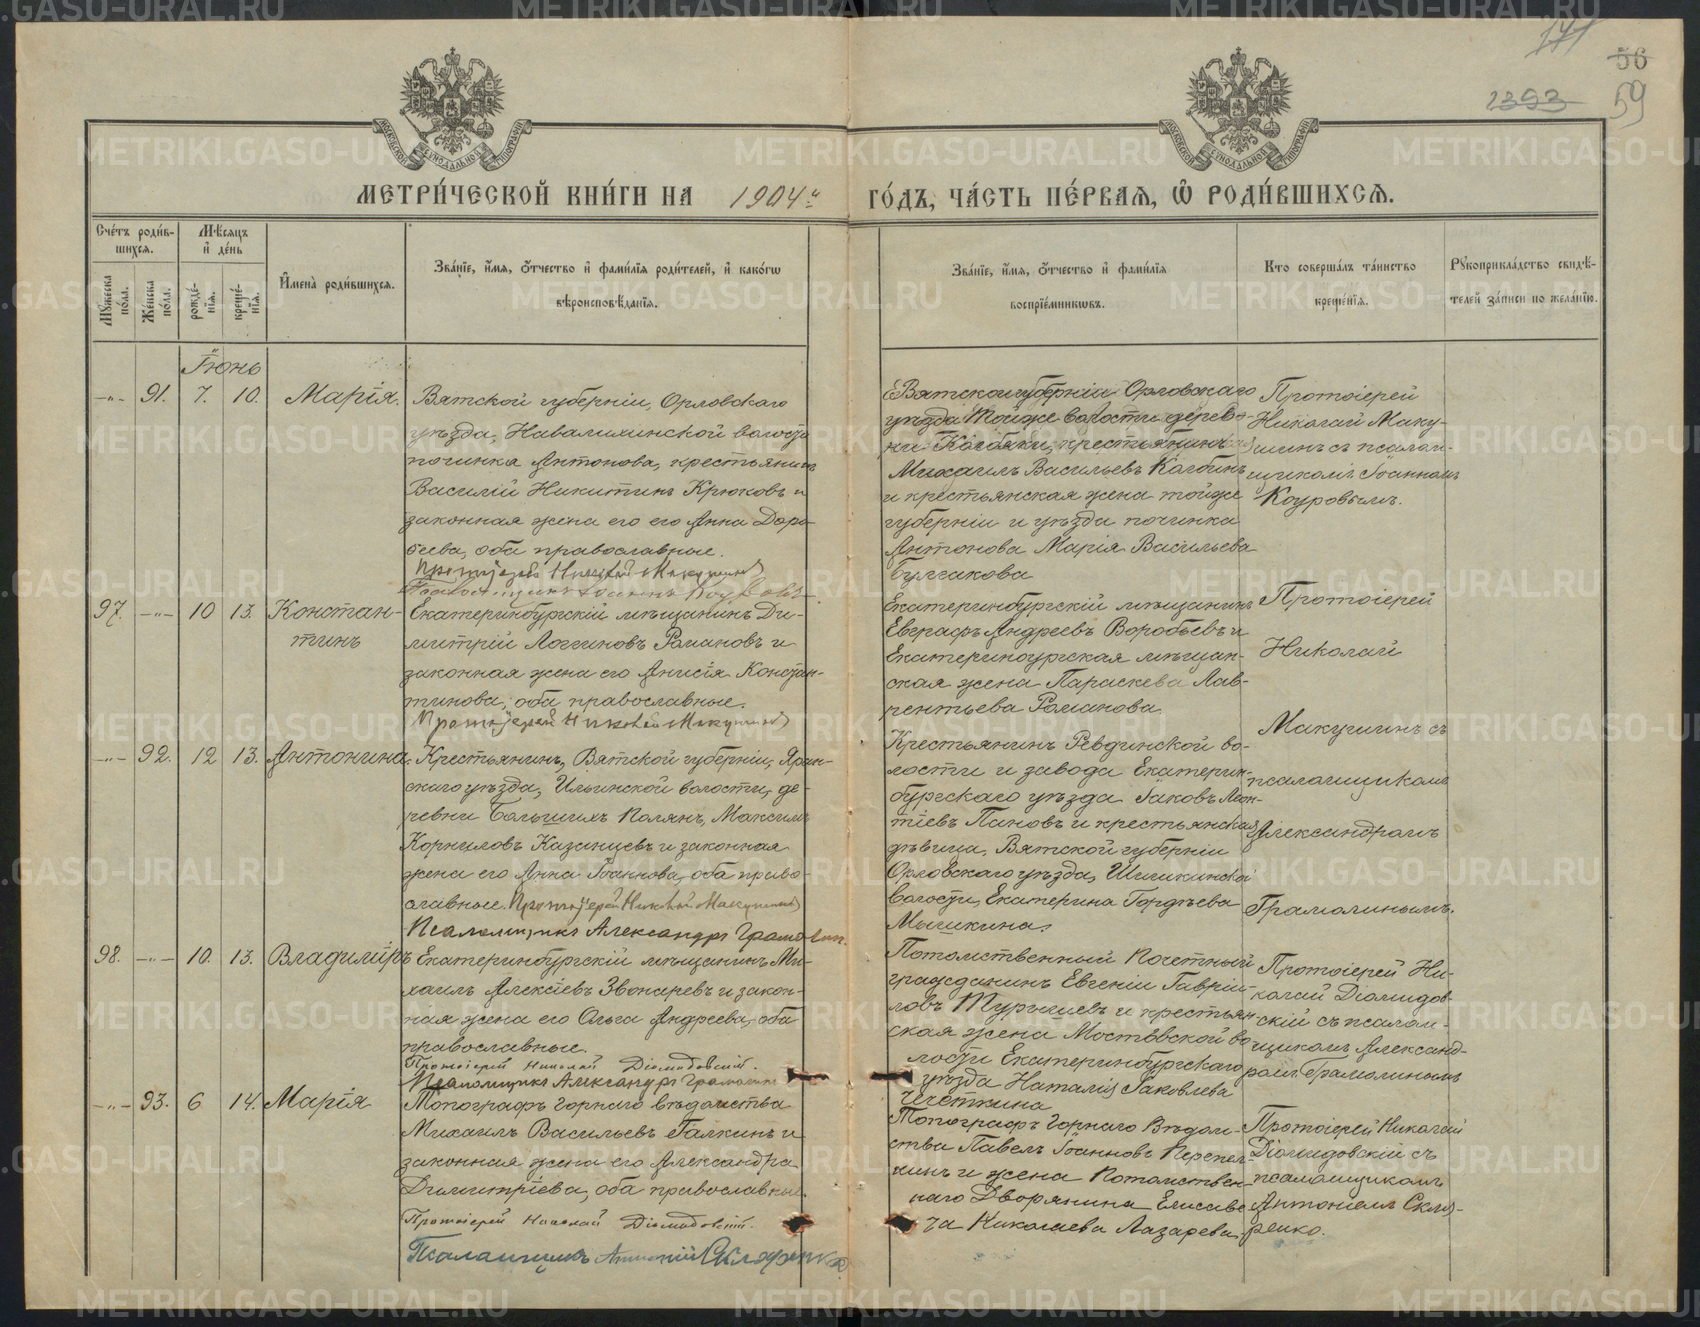 171
56
2393
59
МЕТРИ́ЧЕСКОЙ КНИ́ГИ НА 1904й ГО́ДЪ, ЧА́СТЬ ПЕ́РВАЯ, Ѿ РОДИ́ВШИХСЯ.
Сче́тъ роди́в-
шихся.
Му́жеска по́ла.
Же́нска по́ла.
Мѣ́сяцъ и де́нь
рожде́нїя.
креще́нїя.
Имена̀ роди́вшихся.
Зва́нїе, и́мя, о́тчество и фами́лїя роди́телей, и како́гѡ
вѣроисповѣ́данїя.
Зва́нїе, и́мя, о́тчество и фами́лїя
воспрїе́мникѡвъ.
Кто соверша́лъ та́инство
креще́нїя.
Рꙋкоприкла́дство свидѣ́-
телей за́писи по жела́нїю.
Іюнь
-"- 91. 7. 10. Марія.
Вятской губерніи, Орловскаго
уѣзда, Навалихинской волости
починка Антонова, крестьянинъ
Василій Никитинъ Крюковъ и
законная жена его его Анна Доро-
ѳеева, оба православные.
Протоіерей Николай Макушинъ
Псаломщикъ Іоаннъ Коуровъ
Вятской губерніи Орловскаго
уѣзда тойже волости дерев-
ни крестьянинъ
Михаилъ Васильевъ
и крестьянская жена тойже
губерніи и уѣзда починка
Антонова Марія Васильева
Булгакова
Протоіерей
Николай Маку-
шинъ съ псалом-
щикомъ Іоанномъ
Коуровымъ.
97. -"- 10 13. Констан-
тинъ
Екатеринбургскій мѣщанинъ Ди-
митрій Логгиновъ Романовъ и
законная жена его Анисія Констан-
тинова, оба православные.
Протоіерей Николай Макушинъ
Екатеринбургскій мѣщанинъ
Евграфъ Андреевъ Воробьевъ и
Екатеринбургская мѣщан-
ская жена Параскева Лав-
рентьева Романова.
Протоіерей
Николай
Макушинъ съ
псаломщикомъ
Александромъ
Грамолинымъ.
-"- 92. 12 13. Антонина.
Крестьянинъ, Вятской губерніи, Яран-
скаго уѣзда, Ильинской волости, де-
ревни Большихъ Полянъ, Максимъ
Корниловъ Казанцевъ и законная
жена его Анна Іоаннова, оба право-
славные. Протоіерей Николай Макушинъ
Псаломщикъ Александръ Грамолин.
Крестьянинъ Ревдинской во-
лости и завода Екатерин-
бургскаго уѣзда Іаковъ Леон-
тіевъ Пановъ и крестьянская
дѣвица, Вятской губерніи
Орловскаго уѣзда,
волости, Екатерина Гордѣева
Мышкина.
98. -"- 10. 13. Владиміръ
Екатеринбургскій мѣщанинъ Ми-
хаилъ Алексіевъ Звонаревъ и закон-
ная жена его Ольга Андреева, оба
православные.
Протоіерей Николай Діомидовскій.
Псаломщикъ Александръ Грамолин
Потомственный Почетный
гражданинъ Евгеній Гавріи-
ловъ Турышевъ и крестьян-
ская жена Мостовской во-
лости Екатеринбургскаго
уѣзда Наталія Іаковлева
Щеткина
Протоіерей Ни-
колай Діомидов-
скій съ псалом-
щикомъ Александ-
ромъ Грамолинымъ
-"- 93. 6 14. Марія
Топографъ горнаго вѣдомства
Михаилъ Васильевъ Галкинъ и
законная жена его Александра
Димитріева, оба православные.
Протоіерей Николай Діомидовскій.
Псаломщикъ Антоній Скляренко
Топографъ Горнаго Вѣдом-
ства Павелъ Іоанновъ Перепел-
кинъ и жена Потомствен-
наго Дворянина Елисаве-
та Николаева Лазарева.
Протоіерей Николай
Діомидовскій съ
псаломщикомъ
Антоніемъ Скля-
ренко.